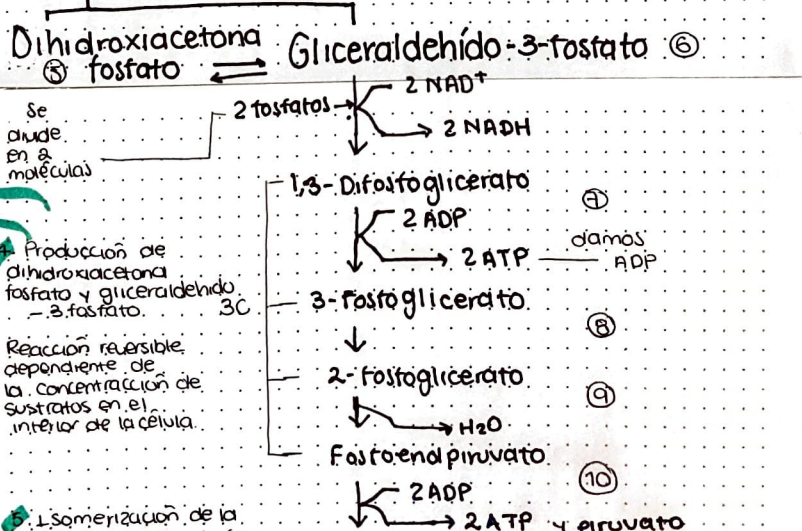 Dihidroxiacetona
⑤ fosfato ⇌ Gliceraldehído-3-fosfato ⑥
2 NAD+
Se
divide
en 2
moléculas
2 fosfatos →
→ 2 NADH
1,3-Difosfoglicerato
⑦
2 ADP
→ 2 ATP
damos
ADP
4 Producción de
dihidroxiacetona
fosfato y gliceraldehido
-3 fosfato.
3C
3-Fosfoglicerato
⑧
Reacción reversible
dependiente de
la concentracción de
sustratos en el
interior de la célula.
2-Fosfoglicerato
⑨
→ H2O
Fosfoenolpiruvato
⑩
2ADP
→ 2 ATP y piruvato
5. Isomerización de la